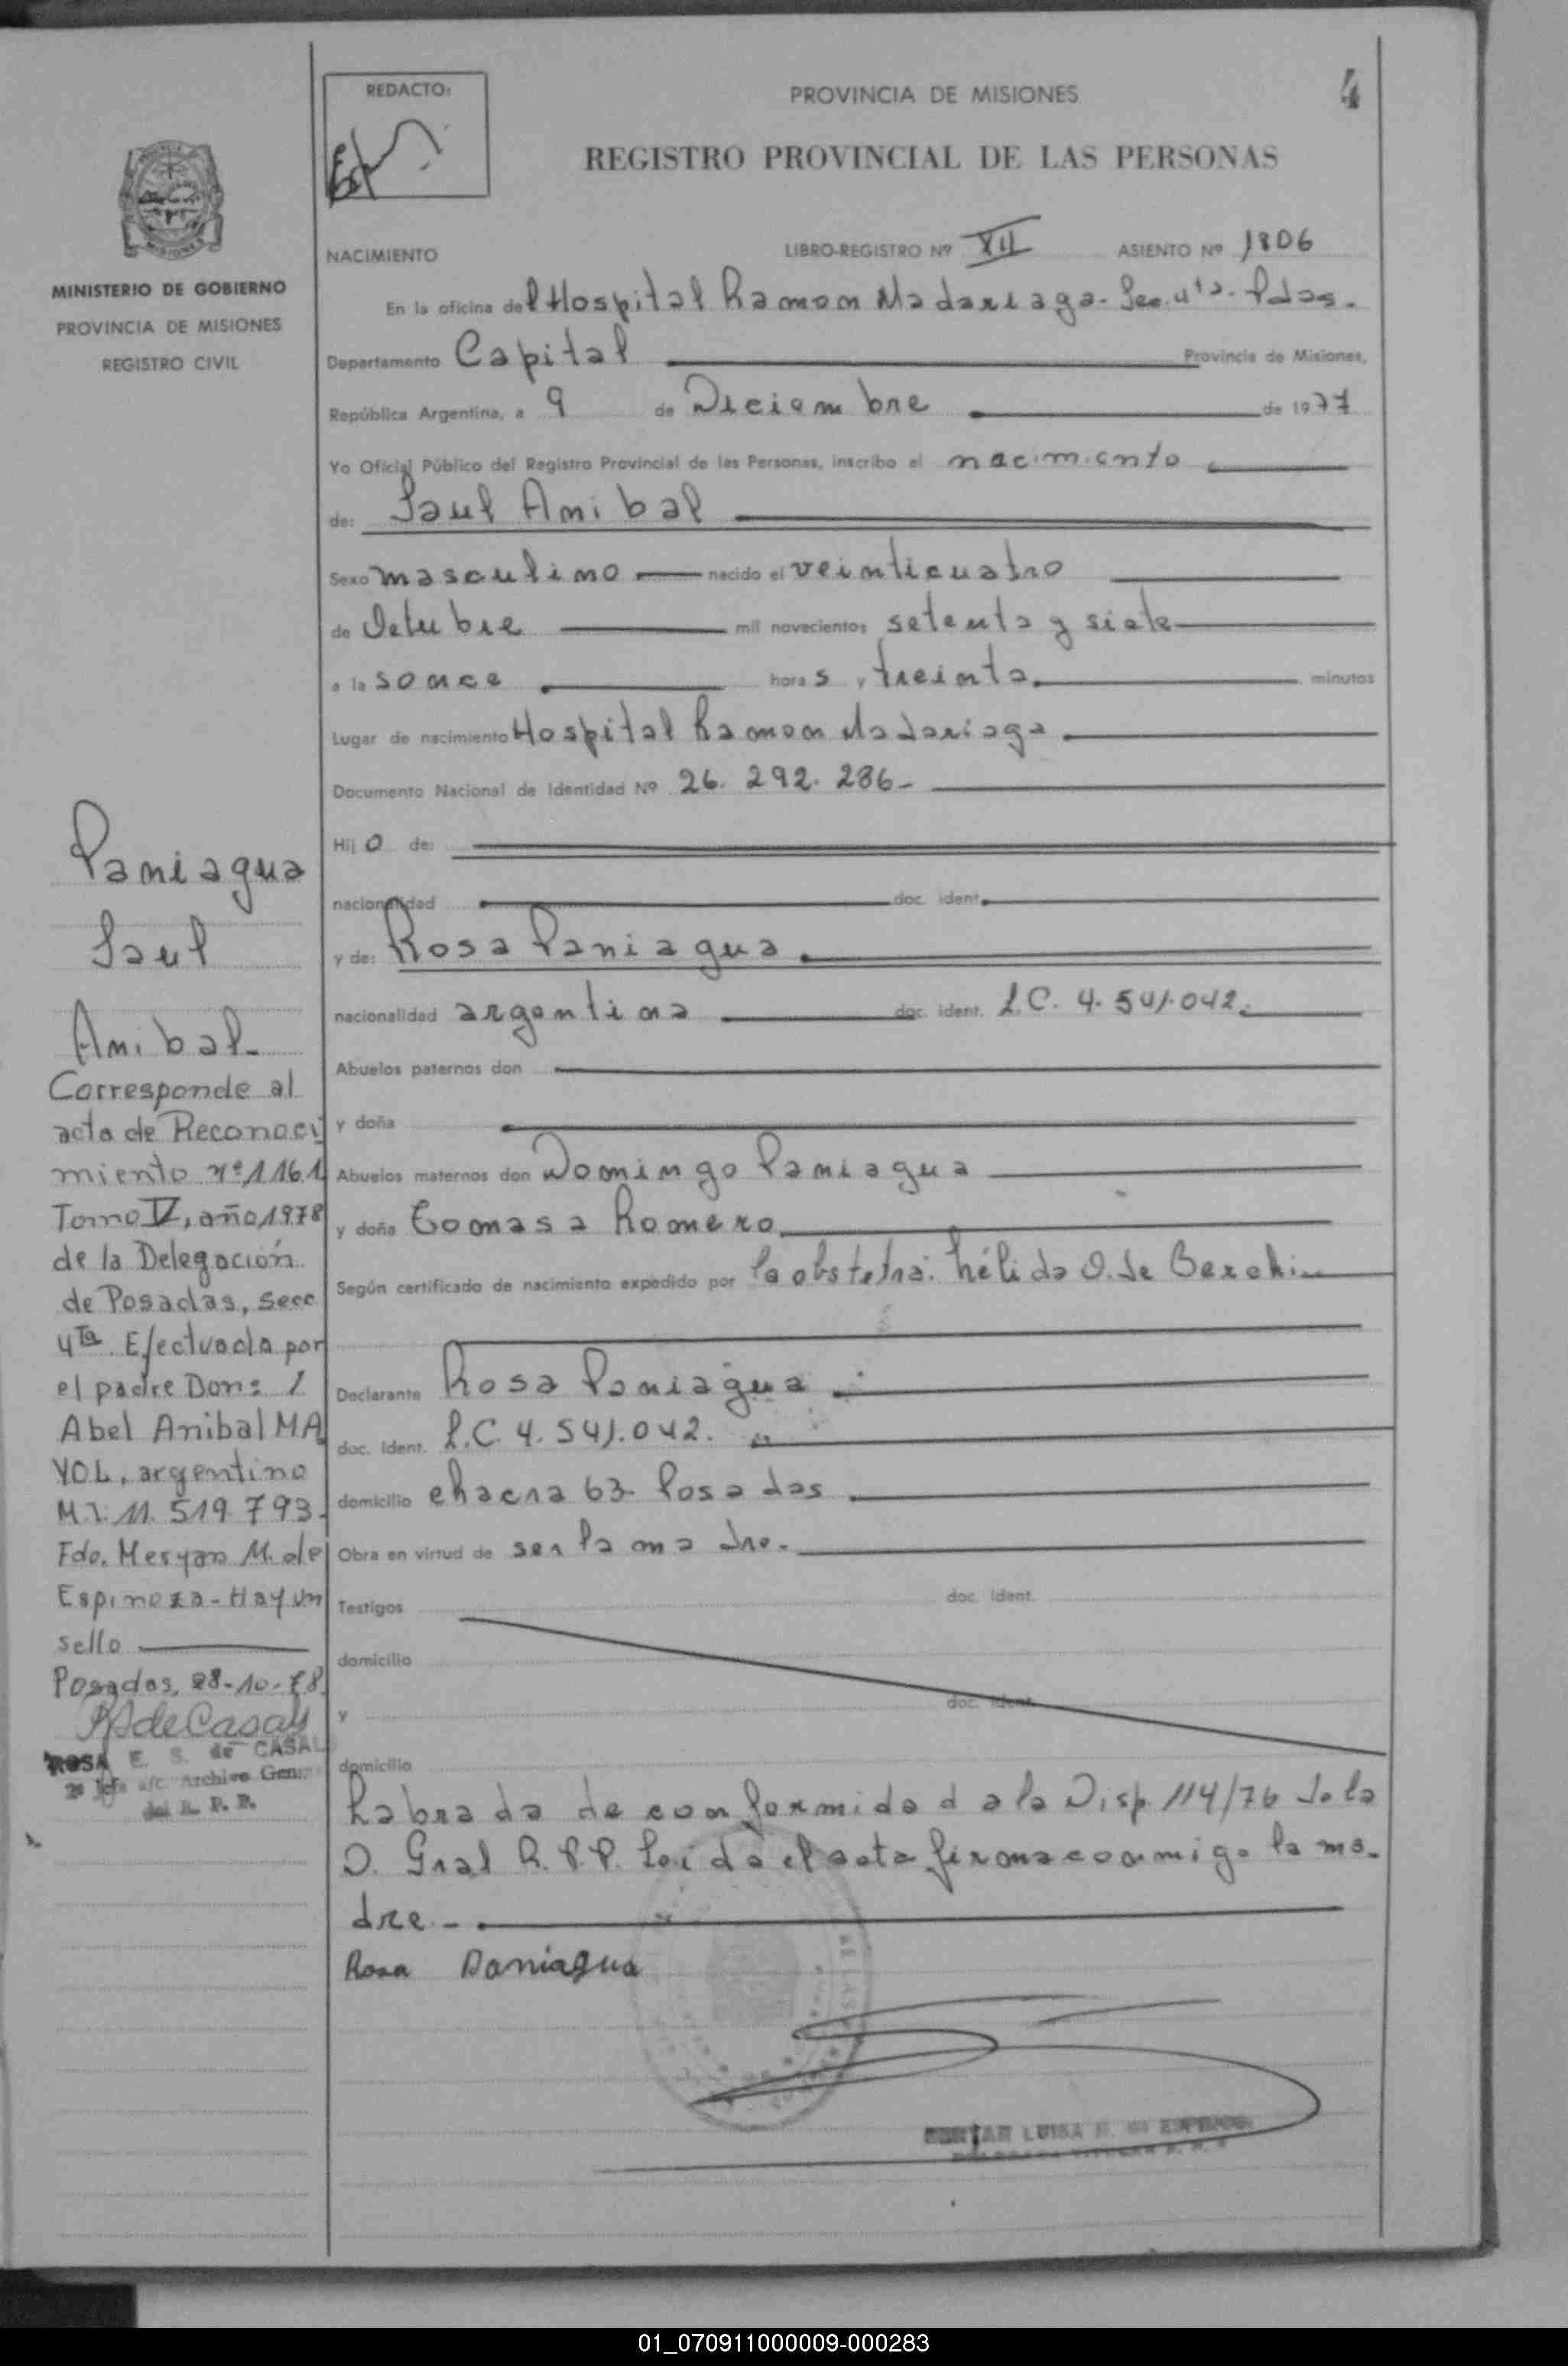 REDACTO:
PROVINCIA DE MISIONES
4
REGISTRO PROVINCIAL DE LAS PERSONAS
MISIONES
NACIMIENTO LIBRO-REGISTRO Nº XII ASIENTO Nº 1806
MINISTERIO DE GOBIERNO
PROVINCIA DE MISIONES
REGISTRO CIVIL
En la oficina del Hospital Ramon Madariaga- Sec. 4ta- Pdas.
Departamento Capital Provincia de Misiones,
República Argentina, a 9 de Diciembre de 1977
Yo Oficial Público del Registro Provincial de las Personas, inscribo el nacimiento
de: Saul Anibal
Sexo masculino nacido el veinticuatro
de Octubre mil novecientos setenta y siete
a las once horas y treinta minutos
Lugar de nacimiento Hospital Ramon Madariaga
Documento Nacional de Identidad Nº 26. 292. 286-
Hijo de:
nacionalidad doc. ident.
y de: Rosa Paniagua
nacionalidad argentina doc. ident. L.C. 4. 541.042.
Abuelos paternos don
y doña
Abuelos maternos don Domingo Paniagua
y doña Tomasa Romero
Según certificado de nacimiento expedido por la obstetra: Nélida O. de
Declarante Rosa Paniagua
doc. ident. L.C. 4. 541.042.
domicilio chacra 63- Posadas
Obra en virtud de ser la madre.
Testigos doc. ident.
domicilio
y doc. ident.
domicilio
Labrada de conformidad a la Disp. 114/76 de la
D. Gral R.P.P. Leida el acta firma conmigo la ma-
dre.-
Rosa Paniagua
Paniagua
Saul
Anibal-
Corresponde al
acta de Reconoci
miento nº 1161
Tomo V, año 1978
de la Delegación
de Posadas, secc
4Ta. Efectuada por
el padre Don:
Abel Anibal MA
YOL, argentino
M.I. 11. 519. 793-
Fdo. Meryan M. de
Espinoza - Hay un
sello
Posadas, 28-10-78
R S de Casals
ROSA E. S. de CASAL
2º Jefe a/c. Archivo Gen.
del R. P. P.
01_070911000009-000283